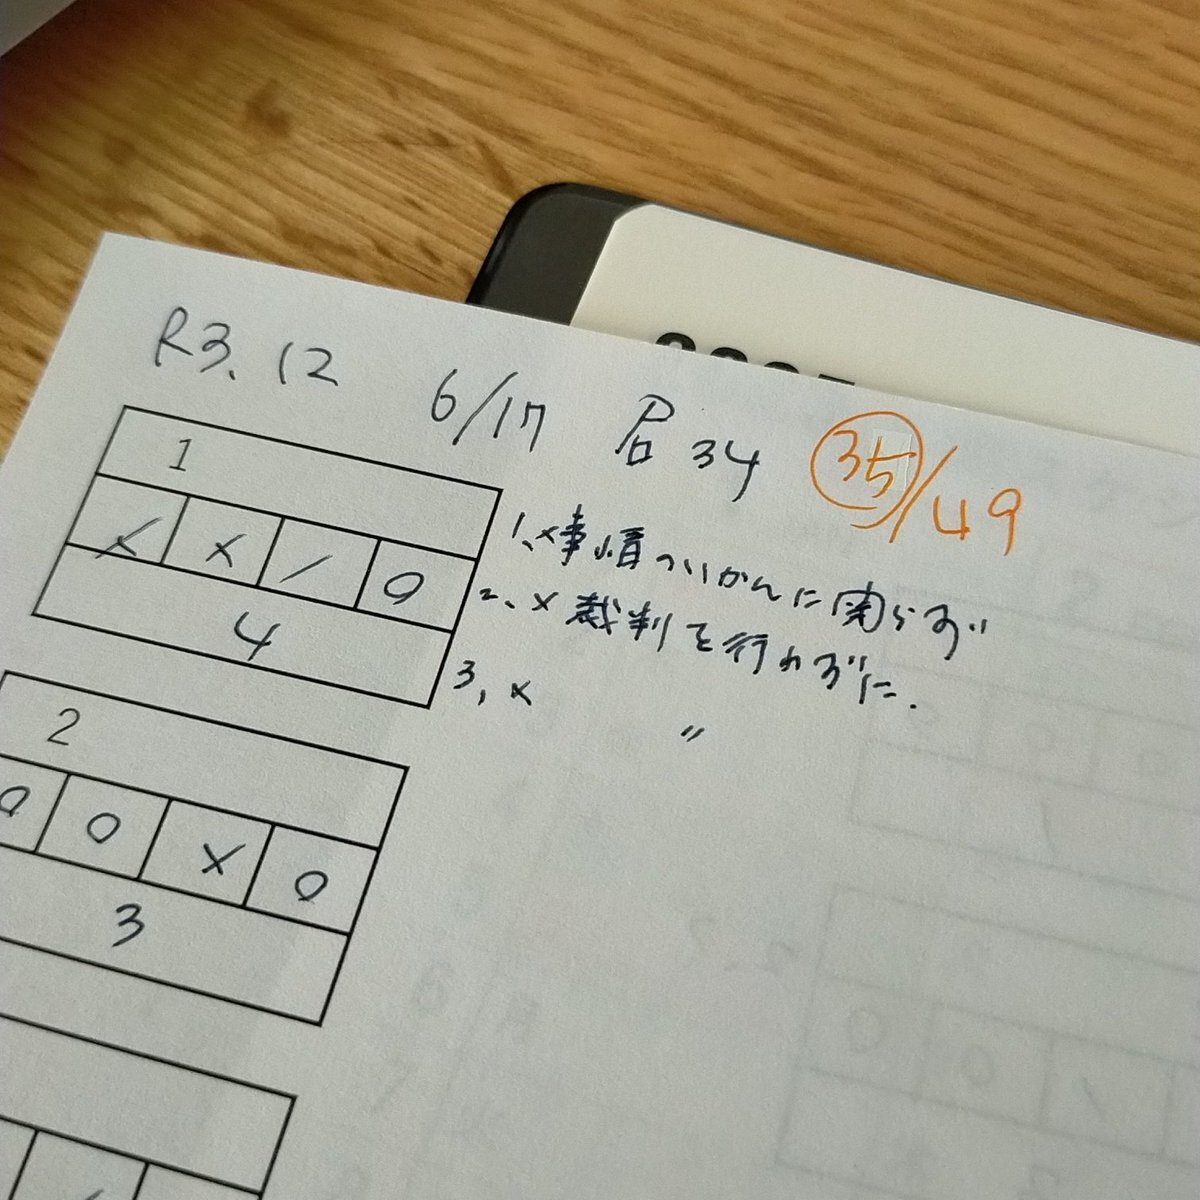 R3.12 6/17 㕂 34 35/49
1
× × / ○
4
1、×事情のいかんに関らず
2、×裁判を行わずに.
3, × 〃
2
○ ○ × ○
3